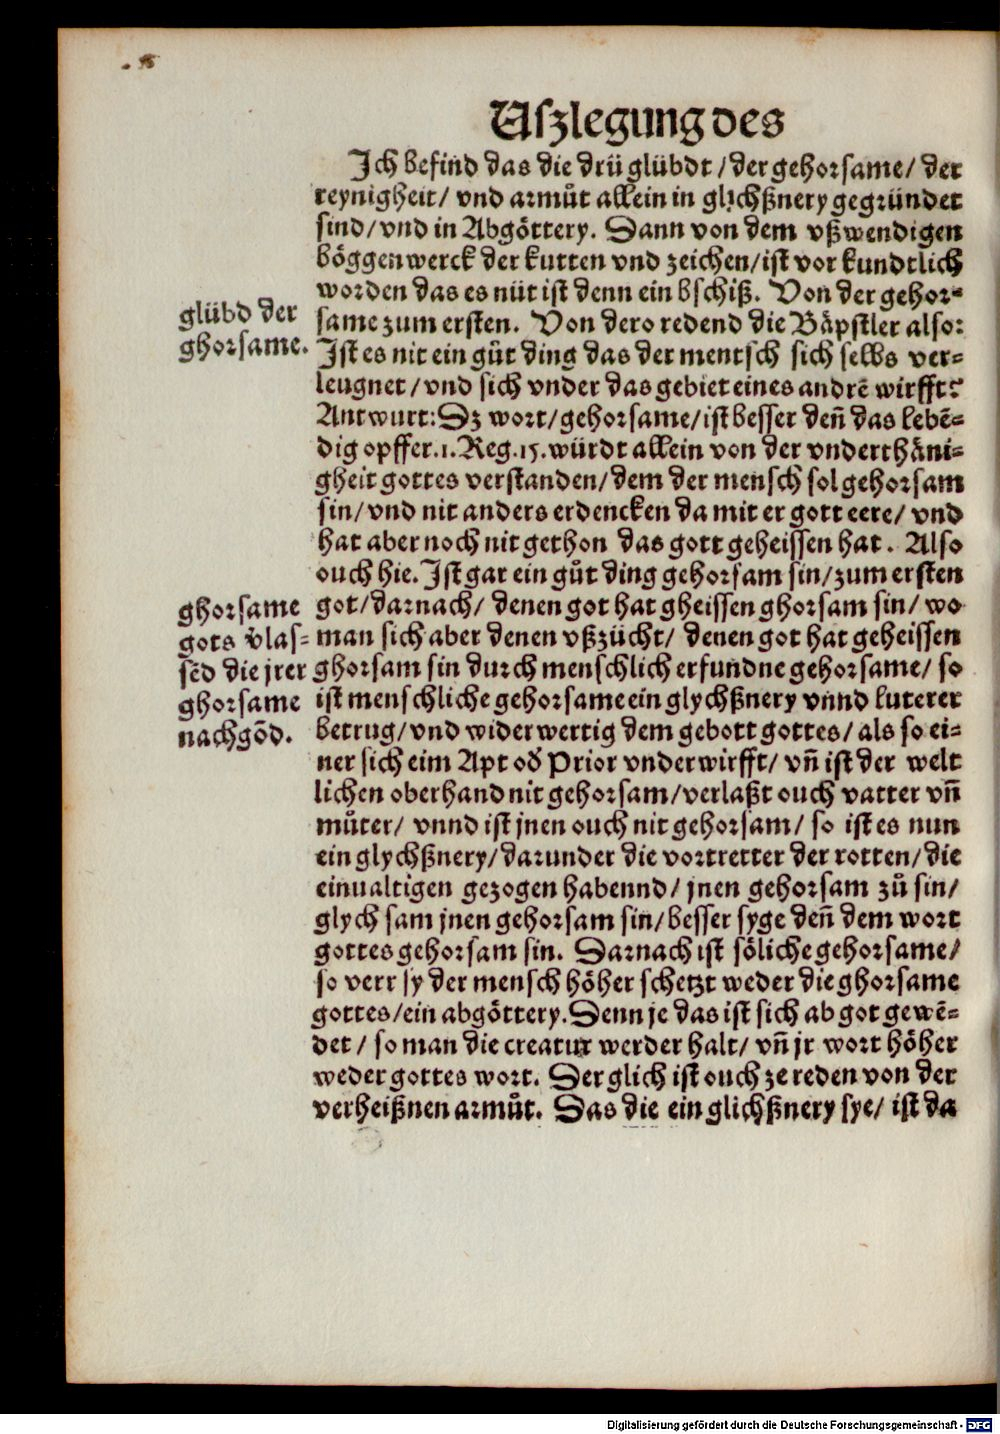 Uſzlegung des
Jch befind das die drü glübdt / der gehorsame / der
reynigheit / vnd armůt allein in glychßnery gegründet
sind / vnd in Abgöttery. Dann von dem vßwendigen
böggenwerck der kutten vnd zeichen / ist vor kundtlich
worden das es nüt ist denn ein bschiß. Von der gehor⸗
glübd der
ghorsame.
same zum ersten. Von dero redend die Bäpstler also:
Jst es nit ein gůt ding das der mentsch sich selbs ver⸗
leugnet / vnd sich vnder das gebiet eines andrē wirfft?
Antwurt: Dz wort / gehorsame / ist besser deñ das lebē⸗
dig opffer. 1. Reg. 15. würdt allein von der vnderthäni⸗
gheit gottes verstanden / dem der mensch sol gehorsam
sin / vnd nit anders erdencken da mit er gott eere / vnd
hat aber noch nit gethon das gott geheissen hat. Also
ouch hie. Jst gar ein gůt ding gehorsam sin / zum ersten
ghorsame
gots v̊las⸗
sēd die jrer
ghorsame
nachgōd.
got / darnach / denen got hat gheissen ghorsam sin / wo
man sich aber denen vßzücht / denen got hat geheissen
ghorsam sin durch menschlich erfundne gehorsame / so
ist menschliche gehorsame ein glychßnery vnnd luterer
betrug / vnd widerwertig dem gebott gottes / als so ei⸗
ner sich eim Apt oď Prior vnderwirfft / vñ ist der welt
lichen oberhand nit gehorsam / verlaßt ouch vatter vñ
můter / vnnd ist jnen ouch nit gehorsam / so ist es nun
ein glychßnery / darunder die vortretter der rotten / die
einualtigen gezogen habennd / jnen gehorsam zů sin /
glych sam jnen gehorsam sin / besser syge deñ dem wort
gottes gehorsam sin. Darnach ist söliche gehorsame /
so verr sy der mensch höher schetzt weder die ghorsame
gottes / ein abgöttery. Denn je das ist sich ab got gewē⸗
det / so man die creatur werder halt / vñ jr wort höher
weder gottes wort. Der glich ist ouch ze reden von der
verheißnen armůt. Das die ein glichßnery sye / ist da
Digitalisierung gefördert durch die Deutsche Forschungsgemeinschaft - DFG